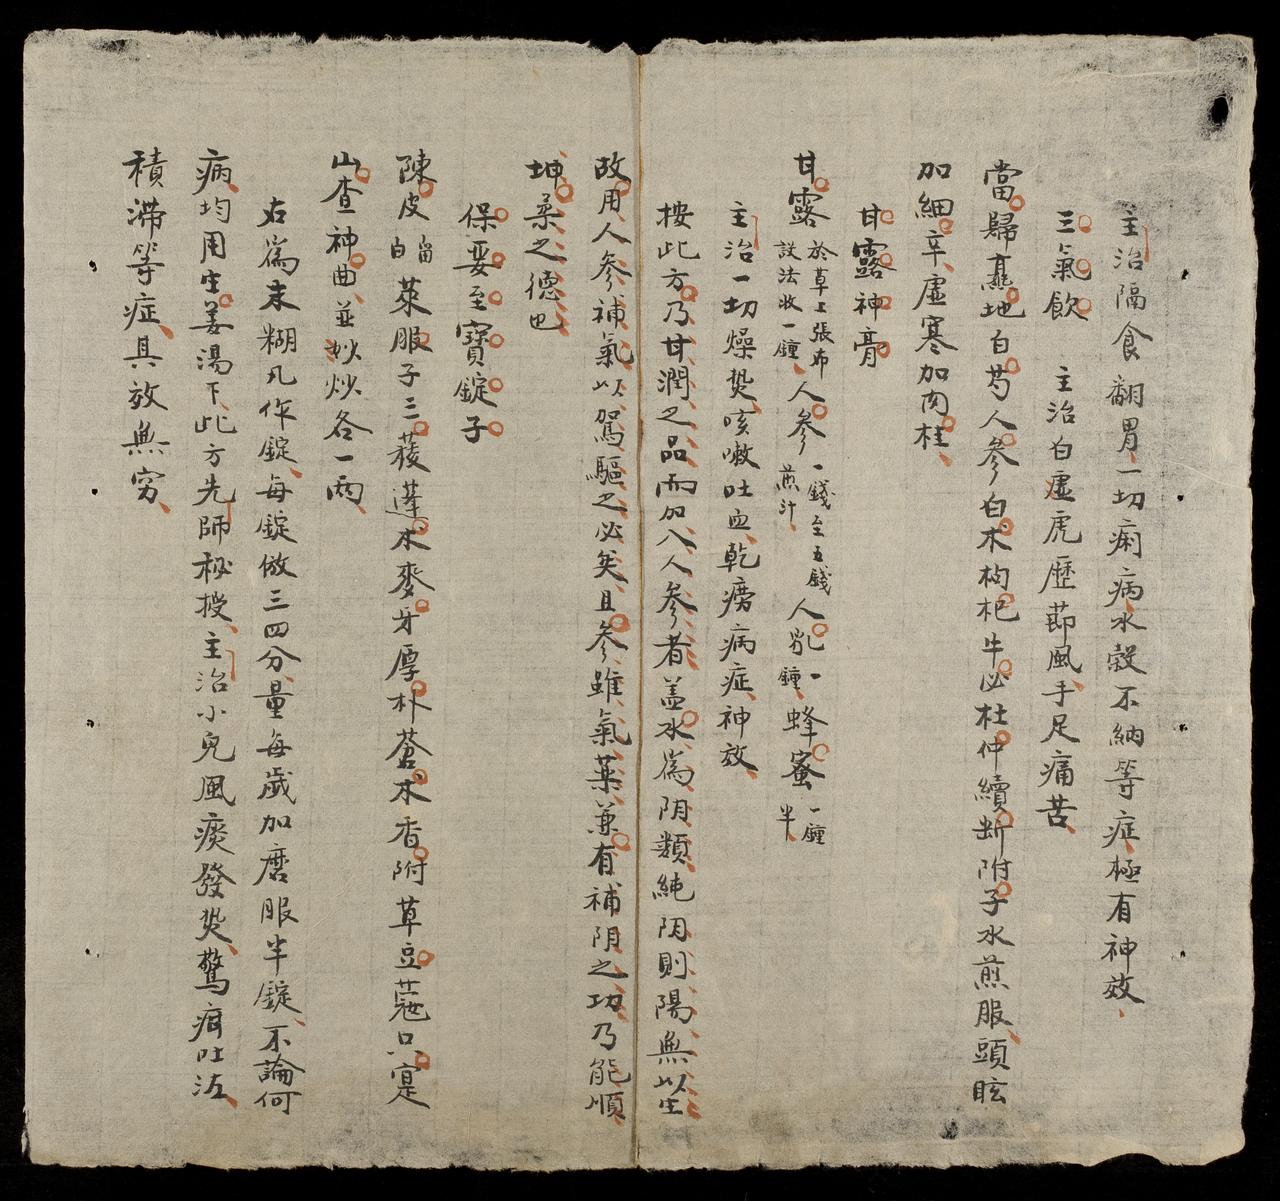 主治隔食翻胃一切痢病水穀不納等症極有神效
三氣飲　主治白虛虎歷節風手足痛苦
當歸熹地白芍人參白术枸杞牛必杜仲續断附子水煎服頭眩
加細辛虛寒加肉桂
甘露神膏
甘露於草上張布設法收一鍾人參一錢至五錢煎汁人乳一鍾蜂蜜一鍾半
主治一切燥热咳嗽吐血乾癆病症神效
按此方乃甘潤之品而加入人參者盖水爲阴類純阴則陽無以生
故用人參補氣以駕驅之必矣且參雖氣薬兼有補阴之功乃能順
坤柔之德也
保嬰至寶錠子
陳皮留白萊服子三稜蓬术麥牙厚朴蒼术香附草豆蔻只寔
山查神曲並妙炒各一兩
右爲末糊凡作錠每錠做三四分量每歲加磨服半錠不論何
病均用生姜湯下此方先師秘授主治小兒風痰發热驚疳吐法
積滯等症具放無穷